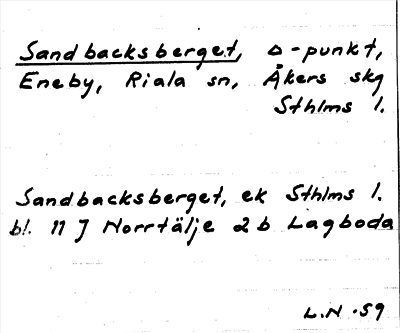 Sandbacksberget, △-punkt,
Eneby, Riala sn, Åkers skg
Sthlms l.
Sandbacksberget, ek Sthlms l.
bl. 11 J Norrtälje 2b Lagboda
L.N -59